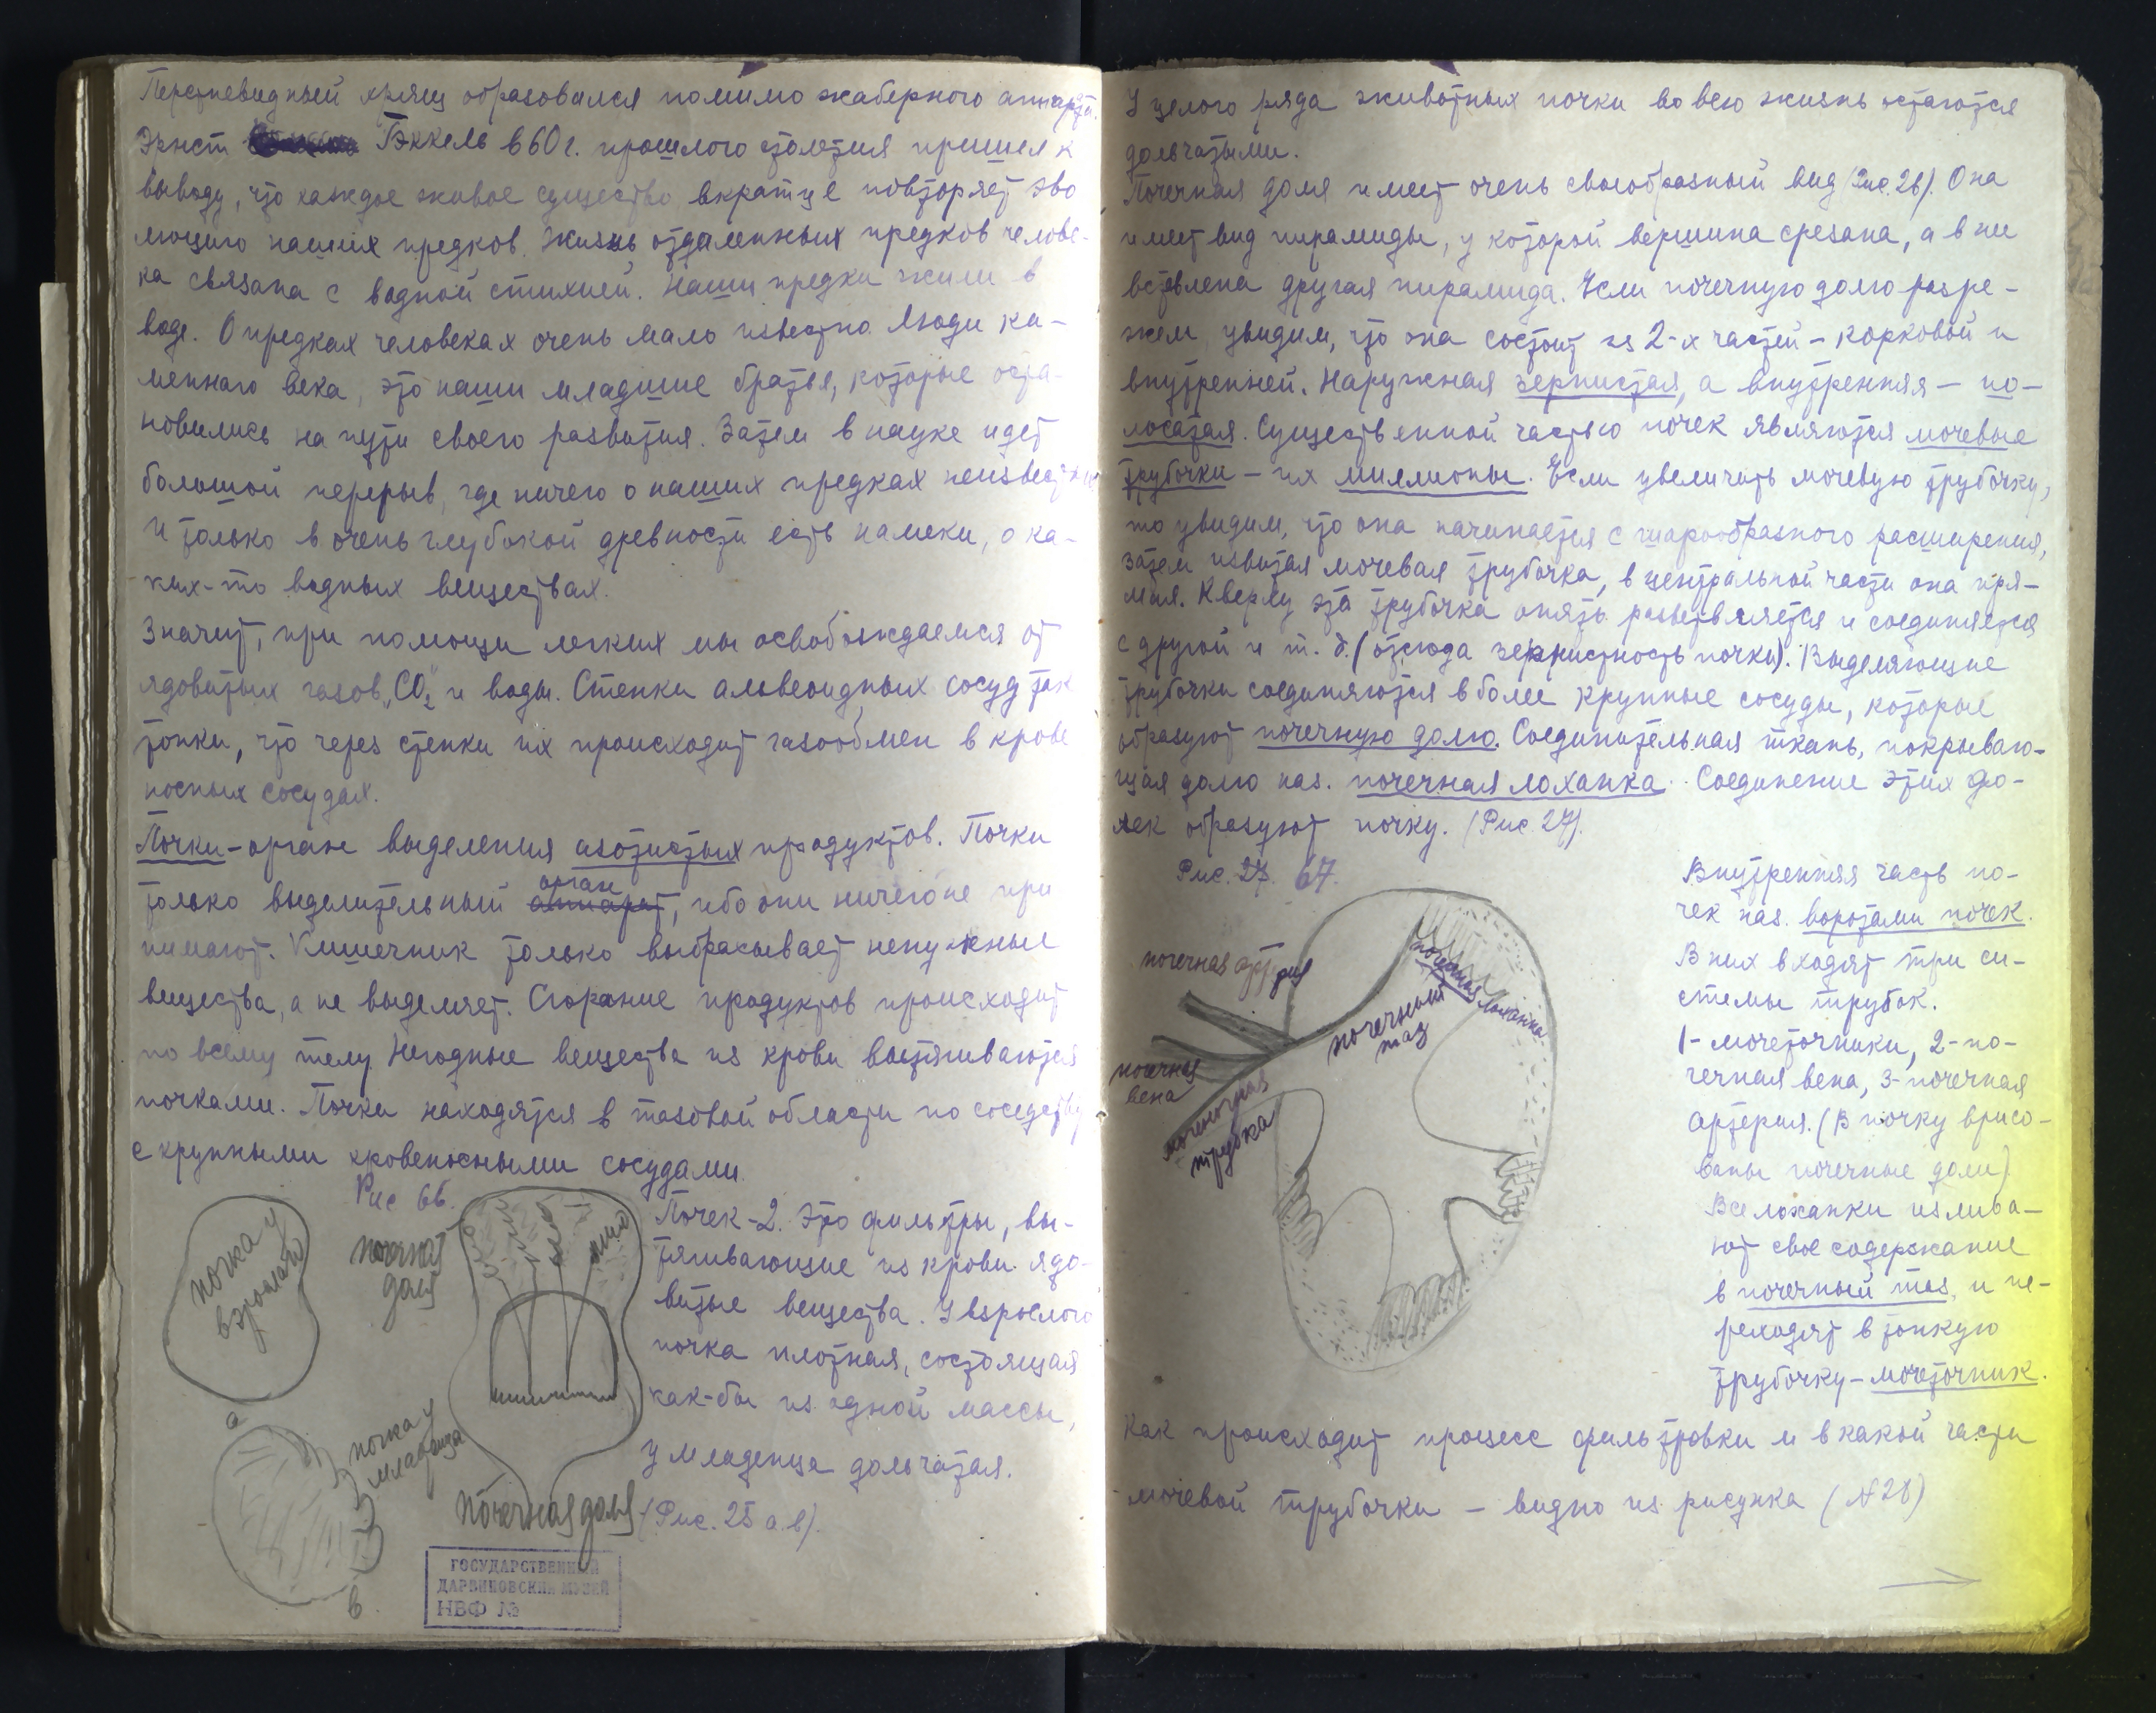 Перстневидный хрящ образовался помимо жаберного аппарата.
Эрнст Гэккель в 60 г. прошлого столетия пришел к
выводу, что каждое живое существо вкратце повторяет эво
люцию наших предков. Жизнь отдаленных предков челове-
ка связана с водной стихией. Наши предки жили в
воде. О предках человеках очень мало известно. Люди ка-
менного века, это наши младшие братья, которые оста-
новились на пути своего развития. Затем в науке идет
большой перерыв, где ничего о наших предках неизвестно
И только в очень глубокой древности есть намеки, о ка-
ких-то водных веществах.
Значит, при помощи легких мы освобождаемся от
ядовитых газов „CO₂" и воды. Стенки альвеоидных сосуд так
тонки, что через стенки их происходит газообмен в крове
носных сосудах.
Почки-орган выделения азотистых продуктов. Почки
только выделительный аппарат орган, ибо они ничего не при
нимают. Кишечник только выбрасывает ненужные
вещества, а не выделяет. Сгорание продуктов происходит
по всему телу. Негодные вещества из крови вытягиваются
почками. Почки находятся в тазовой области по соседству
с крупными кровеносными сосудами.
Рис 66.
почка у взрослого
а
почечная доля
почка у младенца
в
почечная доля
Почек-2. Это фильтры, вы-
тягивающие из крови ядо-
витые вещества. У взрослого
почка плотная, состоящая
как-бы из одной массы,
у младенца дольчатая.
(Рис. 25 а.в).
ГОСУДАРСТВЕННЫЙ
ДАРВИНОВСКИЙ МУЗЕЙ
НВФ №
У целого ряда животных почки во всю жизнь остаются
дольчатыми.
Почечная доля имеет очень своеобразный вид (Рис. 26). Она
имеет вид пирамиды, у которой вершина срезана, а в ни
вставлена другая пирамида. Если почечную долю разре-
жем, увидим, что она состоит из 2-х частей - корковой и
внутренней. Наружная зернистая, а внутренняя - по-
лосатая. Существенной частью почек являются мочевые
трубочки - их миллионы. Если увеличить мочевую трубочку,
то увидим, что она начинается с шарообразного расширения,
затем извитая мочевая трубочка, в центральной части она пря-
мая. Кверху эта трубочка опять разветвляется и соединяется
с другой и т. д. (отсюда зернистность почки). Выделяющие
трубочки соединяются в более крупные сосуды, которые
образуют почечную долю. Соединительная ткань, покрываю-
щая долю наз. почечная лоханка. Соединение этих до-
лек образуют почку. (Рис 27).
Рис. 27. 67.
почечная артерия
почечная вена
мочеточная трубка
почечный таз
почечная лоханка
Внутренняя часть по-
чек наз. воротами почек.
В них входят три си-
стемы трубок.
1- мочеточники, 2-по-
чечная вена, 3-почечная
артерия. (В почку врисо-
ваны почечные доли)
Все лоханки излива-
ют свое содержание
в почечный таз, и пе-
реходят в тонкую
трубочку-мочеточник.
Как происходит процесс фильтровки и в какой части
мочевой трубочки - видно из рисунка (№28)